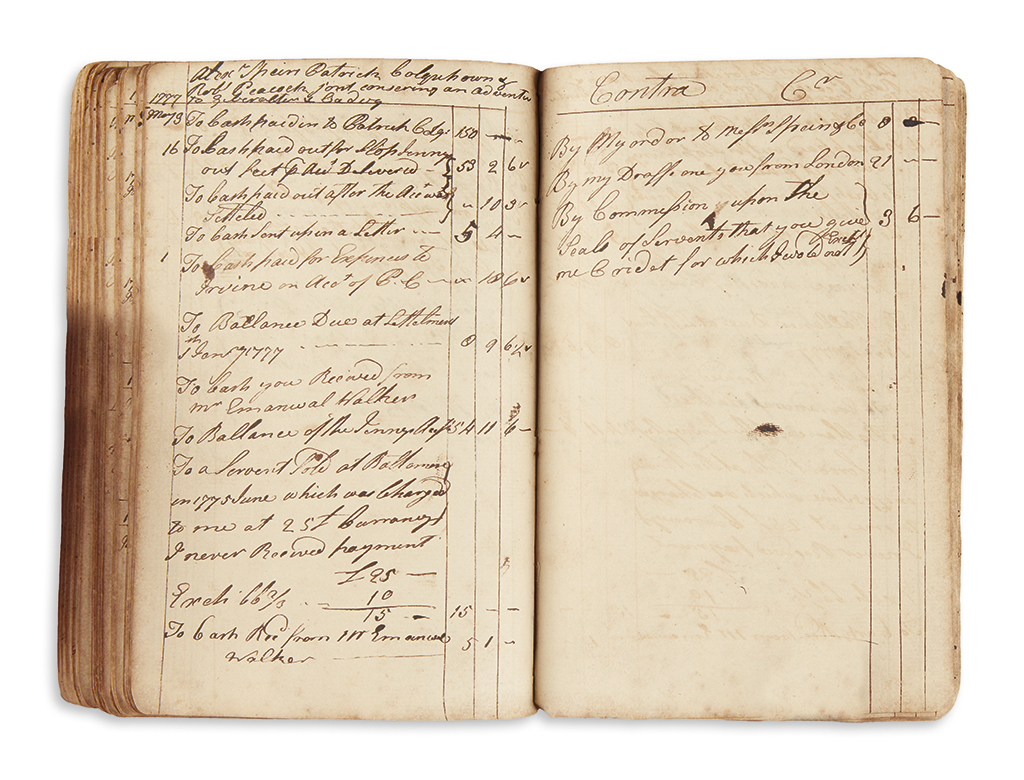 Alexr Speirs Patrick Colquhown &
Robt Peacock joint consering an adventer
1777 to Giberalter & Cadiz
May 13 To Cash paid in to Patrick Colqn 150 — „
16 To Cash paid out for Slop Jenny
out feet Accot Delivered — 53 2 6
To Cash paid out after the Acco was
Settled — „ 10 3
To Cash Sent up in a Letter — 5 4 —
1 To Cash paid for Expences to
Irvine on Accot of P. C — „ 18 6
To Ballance Due at Settelment
1 Janry 1777 — 8 9 6½
To Cash you Received from
Mr Emanwal Walker
To Ballance of the Jennys 54 11 6 —
To a Servent Sold at Baltamore
in 1775 June which was Charged
to me at 25£ Currancy
I never Received payment
£ 25 —
10
Exch 66⅔ 15 — 15 — —
To Cash Recd from Mr Emanwal 5 1 —
Walker
Contra Cr
By My order to Messrs Speirs & Co 8 — —
By my Draft one you from London 21 — —
By Commission upon the
Seals of Servents that you give 3 6 —
me Cridet for which I wold not Exept